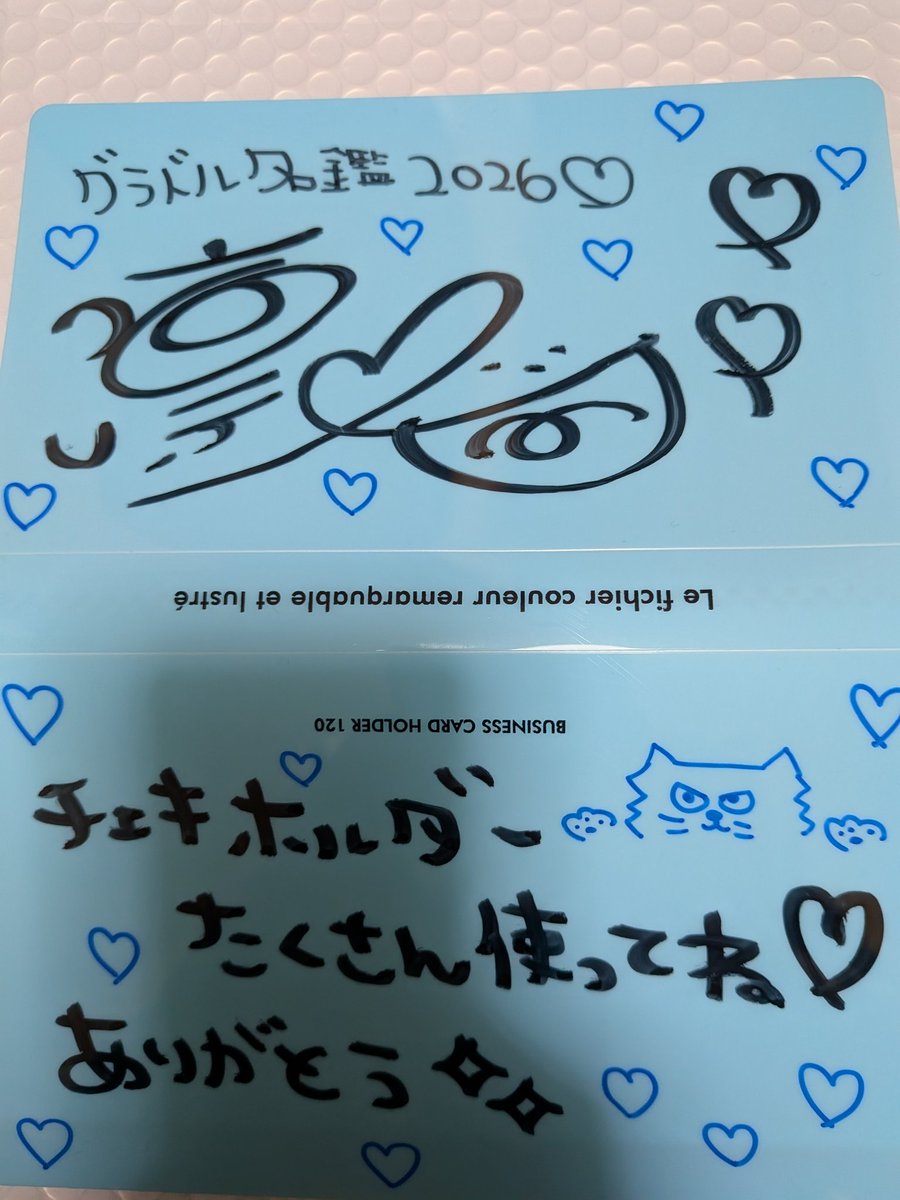 グラドル名鑑2026♡
Le fichier couleur remarquable et lustré
BUSINESS CARD HOLDER 120
チェキホルダー
たくさん使ってね♡
ありがとう